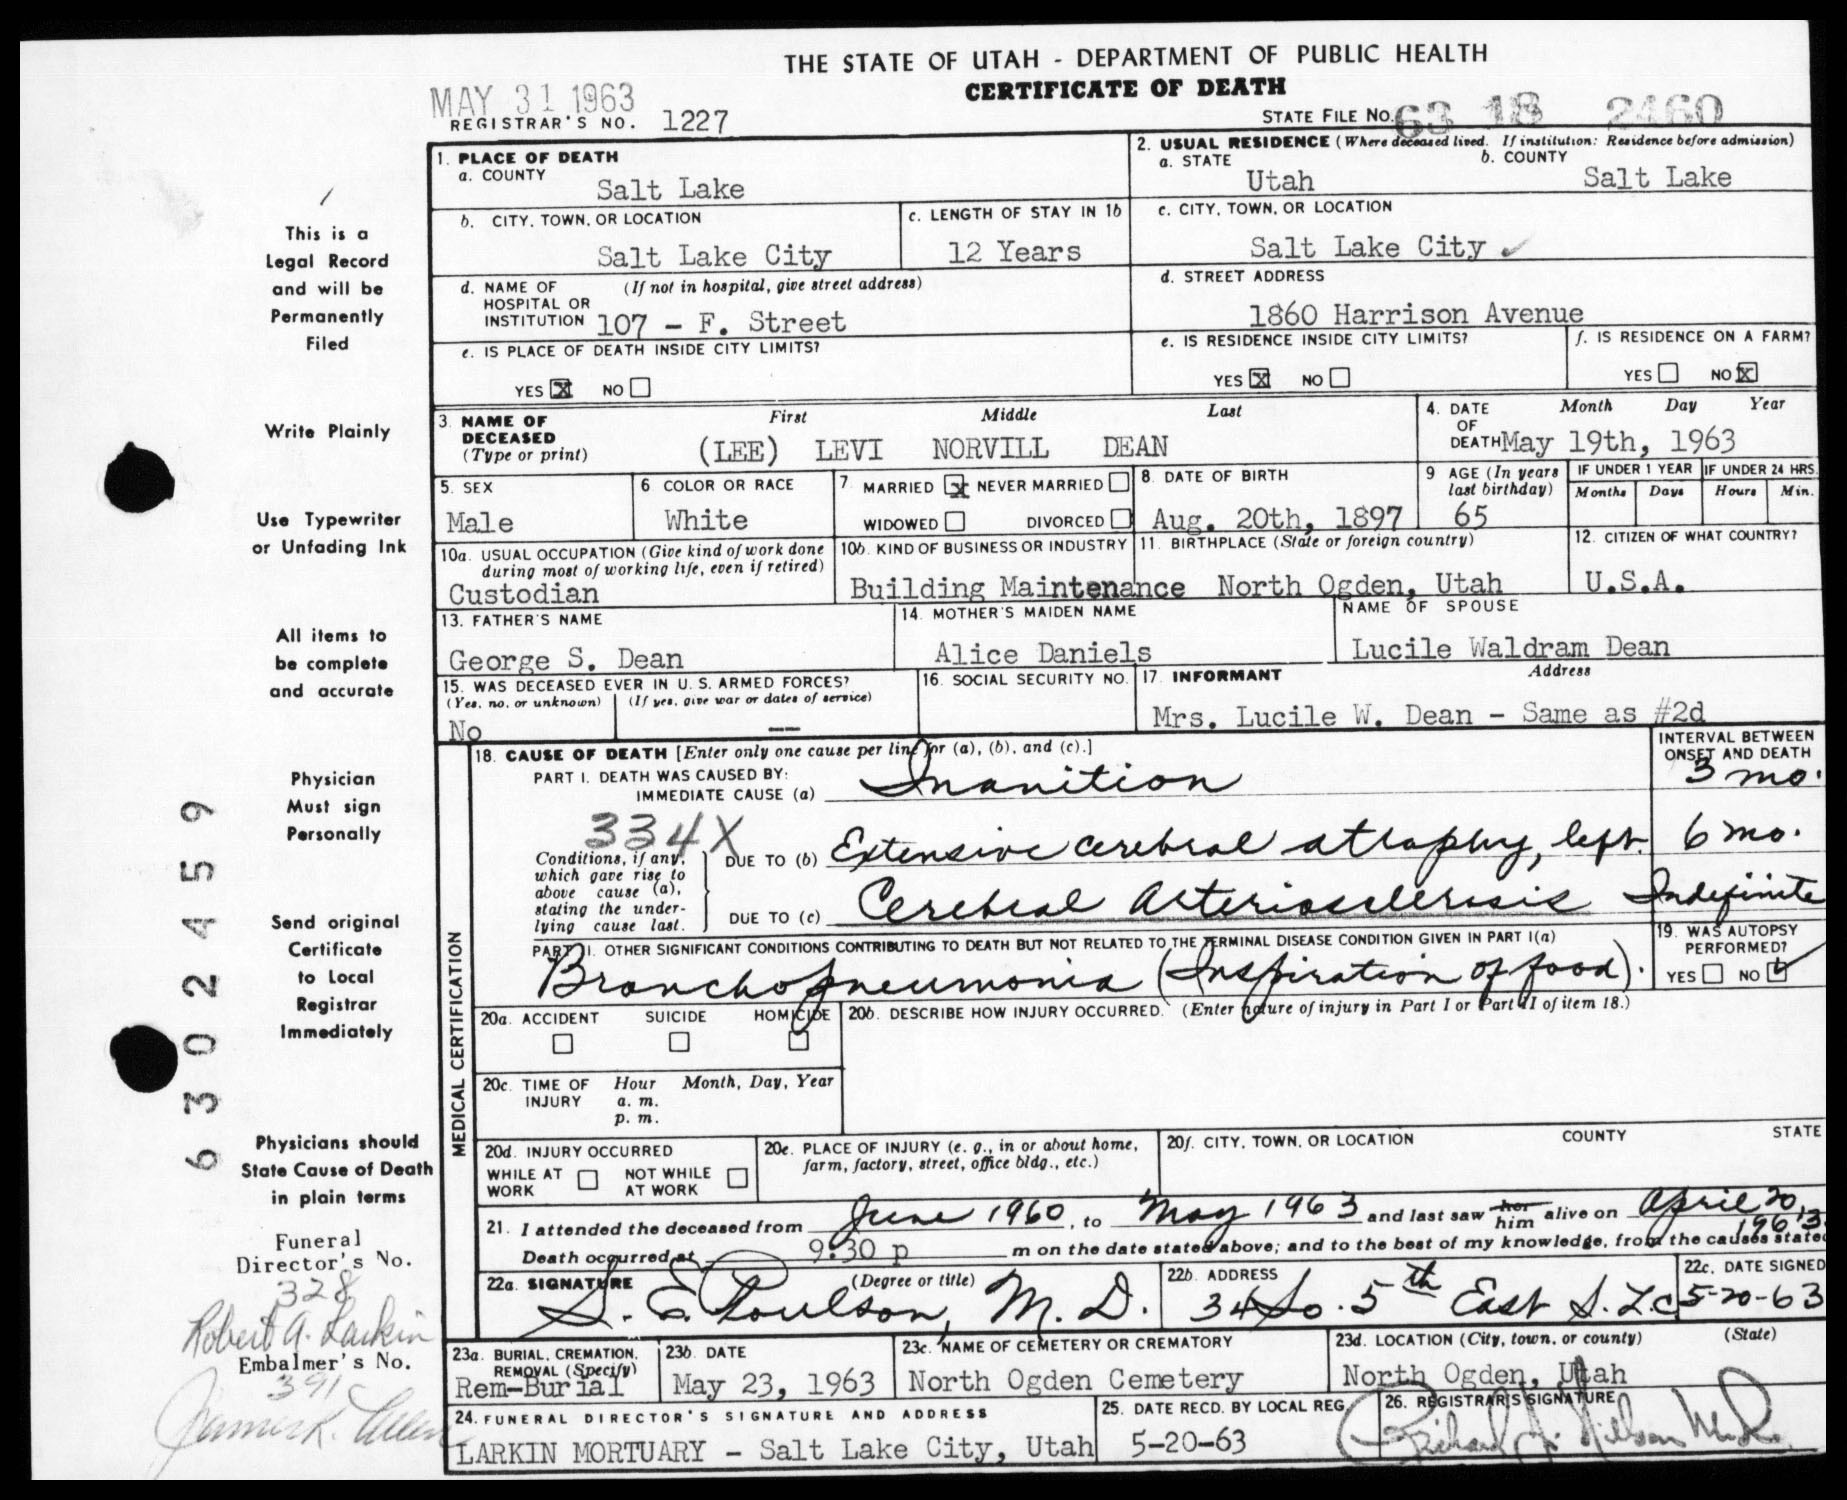 THE STATE OF UTAH - DEPARTMENT OF PUBLIC HEALTH
CERTIFICATE OF DEATH
MAY 31 1963
REGISTRAR'S NO. 1227
STATE FILE NO. 63 18 2460
1. PLACE OF DEATH
a. COUNTY
Salt Lake
2. USUAL RESIDENCE (Where deceased lived. If institution: Residence before admission)
a. STATE b. COUNTY
Utah Salt Lake
b. CITY, TOWN, OR LOCATION
Salt Lake City
c. LENGTH OF STAY IN 1b
12 Years
c. CITY, TOWN, OR LOCATION
Salt Lake City ✓
d. NAME OF (If not in hospital, give street address)
HOSPITAL OR
INSTITUTION 107 - F. Street
d. STREET ADDRESS
1860 Harrison Avenue
e. IS PLACE OF DEATH INSIDE CITY LIMITS?
YES X NO
e. IS RESIDENCE INSIDE CITY LIMITS?
YES X NO
f. IS RESIDENCE ON A FARM?
YES NO X
3. NAME OF DECEASED (Type or print)
First Middle Last
(LEE) LEVI NORVILL DEAN
4. DATE OF DEATH
Month Day Year
May 19th, 1963
5. SEX
Male
6 COLOR OR RACE
White
7. MARRIED X NEVER MARRIED
WIDOWED DIVORCED
8. DATE OF BIRTH
Aug. 20th, 1897
9 AGE (In years last birthday)
65
IF UNDER 1 YEAR
Months Days
IF UNDER 24 HRS.
Hours Min.
10a. USUAL OCCUPATION (Give kind of work done
during most of working life, even if retired)
Custodian
10b. KIND OF BUSINESS OR INDUSTRY
Building Maintenance
11. BIRTHPLACE (State or foreign country)
North Ogden, Utah
12. CITIZEN OF WHAT COUNTRY?
U.S.A.
13. FATHER'S NAME
George S. Dean
14. MOTHER'S MAIDEN NAME
Alice Daniels
NAME OF SPOUSE
Lucile Waldram Dean
15. WAS DECEASED EVER IN U. S. ARMED FORCES?
(Yes, no, or unknown) (If yes, give war or dates of service)
No --
16. SOCIAL SECURITY NO.
17. INFORMANT Address
Mrs. Lucile W. Dean - Same as #2d
18. CAUSE OF DEATH [Enter only one cause per line for (a), (b), and (c).]
PART I. DEATH WAS CAUSED BY:
IMMEDIATE CAUSE (a) Inanition
INTERVAL BETWEEN
ONSET AND DEATH
3 mo.
334X
Conditions, if any,
which gave rise to
above cause (a),
stating the under-
lying cause last.
DUE TO (b) Extensive cerebral atrophy, left. 6 mo.
DUE TO (c) Cerebral Arteriosclerosis Indefinite
PART II. OTHER SIGNIFICANT CONDITIONS CONTRIBUTING TO DEATH BUT NOT RELATED TO THE TERMINAL DISEASE CONDITION GIVEN IN PART I(a)
Bronchopneumonia (Inspiration of food).
19. WAS AUTOPSY
PERFORMED?
YES NO ✓
20a. ACCIDENT SUICIDE HOMICIDE
20b. DESCRIBE HOW INJURY OCCURRED. (Enter nature of injury in Part I or Part II of item 18.)
20c. TIME OF INJURY
Hour Month, Day, Year
a. m.
p. m.
20d. INJURY OCCURRED
WHILE AT WORK NOT WHILE AT WORK
20e. PLACE OF INJURY (e. g., in or about home,
farm, factory, street, office bldg., etc.)
20f. CITY, TOWN, OR LOCATION COUNTY STATE
21. I attended the deceased from June 1960, to May 1963 and last saw her him alive on April 20, 1963.
Death occurred at 9:30 p m on the date stated above; and to the best of my knowledge, from the causes stated
22a. SIGNATURE (Degree or title)
S. E. Poulson, M. D.
22b. ADDRESS
34 So. 5th East S.L.C
22c. DATE SIGNED
5-20-63
23a. BURIAL, CREMATION,
REMOVAL (Specify)
Rem-Burial
23b. DATE
May 23, 1963
23c. NAME OF CEMETERY OR CREMATORY
North Ogden Cemetery
23d. LOCATION (City, town, or county) (State)
North Ogden, Utah
24. FUNERAL DIRECTOR'S SIGNATURE AND ADDRESS
LARKIN MORTUARY - Salt Lake City, Utah
25. DATE RECD. BY LOCAL REG.
5-20-63
26. REGISTRAR'S SIGNATURE
MEDICAL CERTIFICATION
This is a
Legal Record
and will be
Permanently
Filed
Write Plainly
Use Typewriter
or Unfading Ink
All items to
be complete
and accurate
Physician
Must sign
Personally
Send original
Certificate
to Local
Registrar
Immediately
Physicians should
State Cause of Death
in plain terms
Funeral
Director's No.
328
Robert A. Larkin
Embalmer's No.
391
6302459